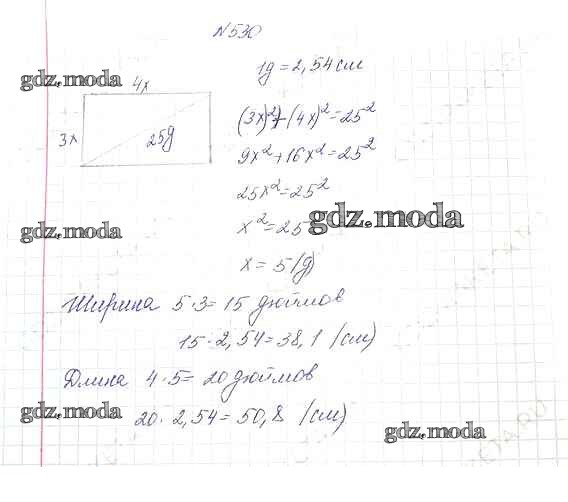 N530
1g = 2,54 см
gdz.moda
4x
3x
25g
(3x)²+(4x)²=25²
9x²+16x²=25²
25x²=25²
gdz.moda
x²=25
gdz.moda
x = 5 (g)
Ширина 5·3= 15 дюймов
15·2,54=38,1 (см)
Длина 4·5= 20 дюймов
gdz.moda
20·2,54=50,8 (см)
gdz.moda